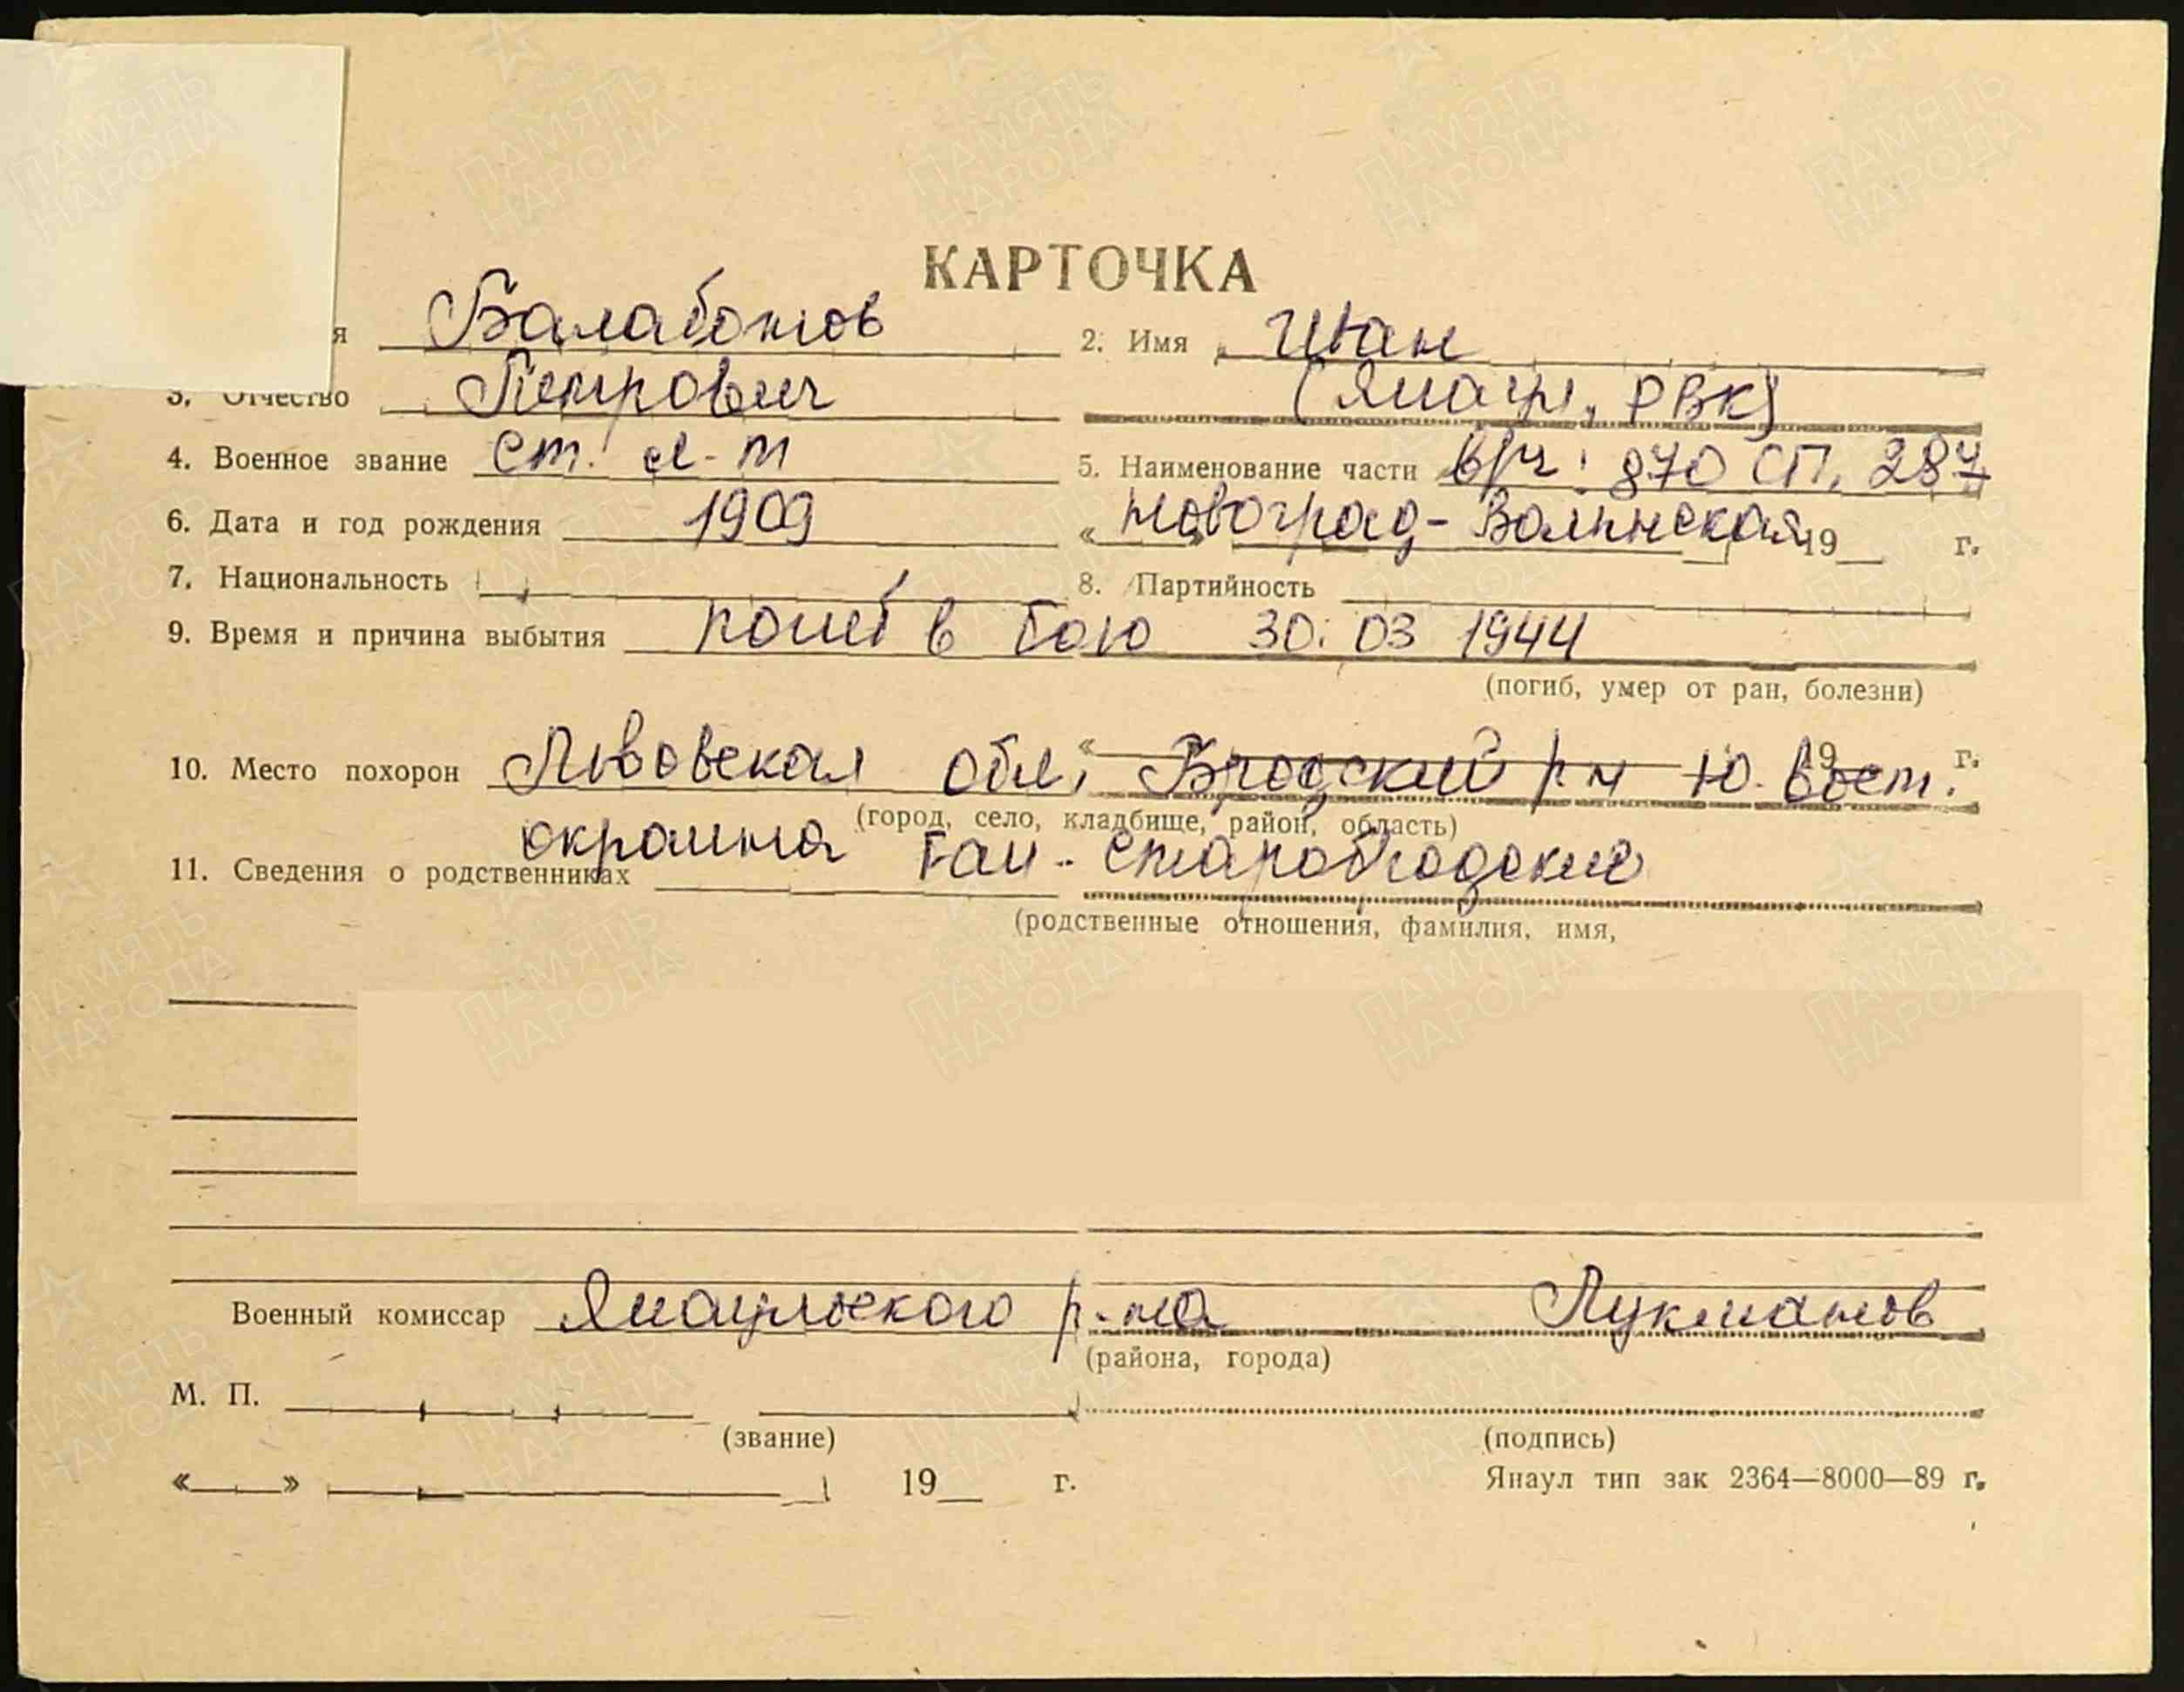 КАРТОЧКА
я Балабонов 2. Имя Иван
3. Отчество Петрович (Янаул. РВК)
4. Военное звание ст. л-т 5. Наименование части в/ч: 870 СП, 287
6. Дата и год рождения 1909 « Новоград-Волынская 19 г.
7. Национальность 8. Партийность
9. Время и причина выбытия погиб в бою 30.03 1944
(погиб, умер от ран, болезни)
« 19 г.
10. Место похорон Львовская обл, Бродский р-н Ю. Вост.
(город, село, кладбище, район, область)
окраина Гаи-Старобродские
11. Сведения о родственниках
(родственные отношения, фамилия, имя,
Военный комиссар Янаульского р-на Лукманов
(района, города)
М. П.
(звание) (подпись)
« » 19 г. Янаул тип зак 2364—8000—89 г.
ПАМЯТЬ НАРОДА